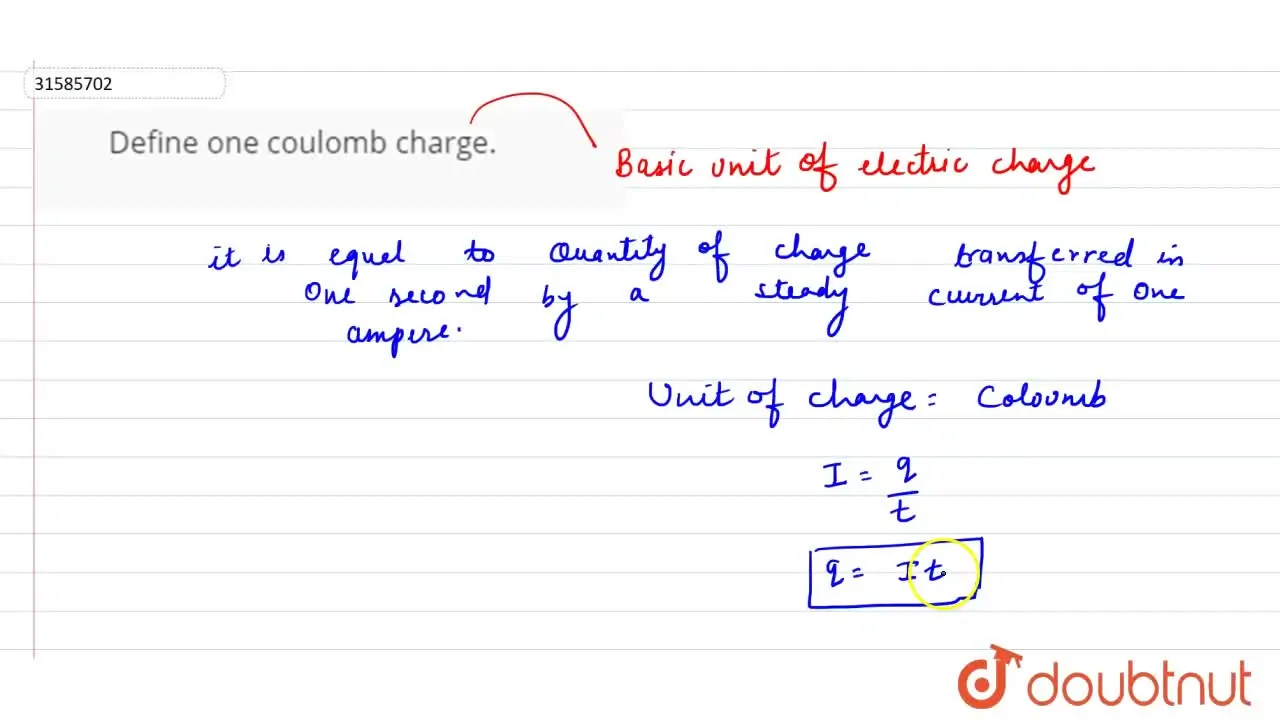 31585702
Define one coulomb charge.
Basic unit of electric charge
it is equal to Quantity of charge transferred in
one second by a steady current of one
ampere.
Unit of charge = Coloumb
I = q/t
q = It
doubtnut